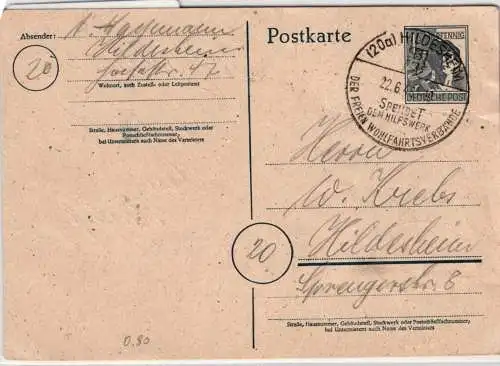 Absender:
Hildesheim
20
Wohnort, auch Zustell- oder Leitpostamt
Straße, Hausnummer, Gebäudeteil, Stockwerk oder
Postschließfachnummer,
bei Untermietern auch Name des Vermieters
Postkarte
PFENNIG
DEUTSCHE POST
(20a) HILDESHEIM
22.6
SPENDET
DEM HILFSWERK
DER FREIEN WOHLFAHRTSVERBÄNDE
Herrn
W. Krebs
20
Hildesheim
Sprengerstr. 8
Straße, Hausnummer, Gebäudeteil, Stockwerk oder Postschließfachnummer,
bei Untermietern auch Name des Vermieters
0.80